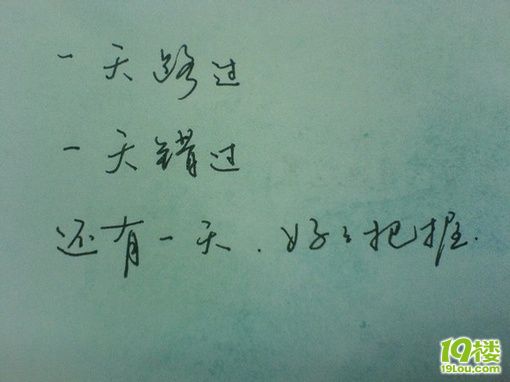 一天路过
一天错过
还有一天.好々把握.
19楼
19lou.com